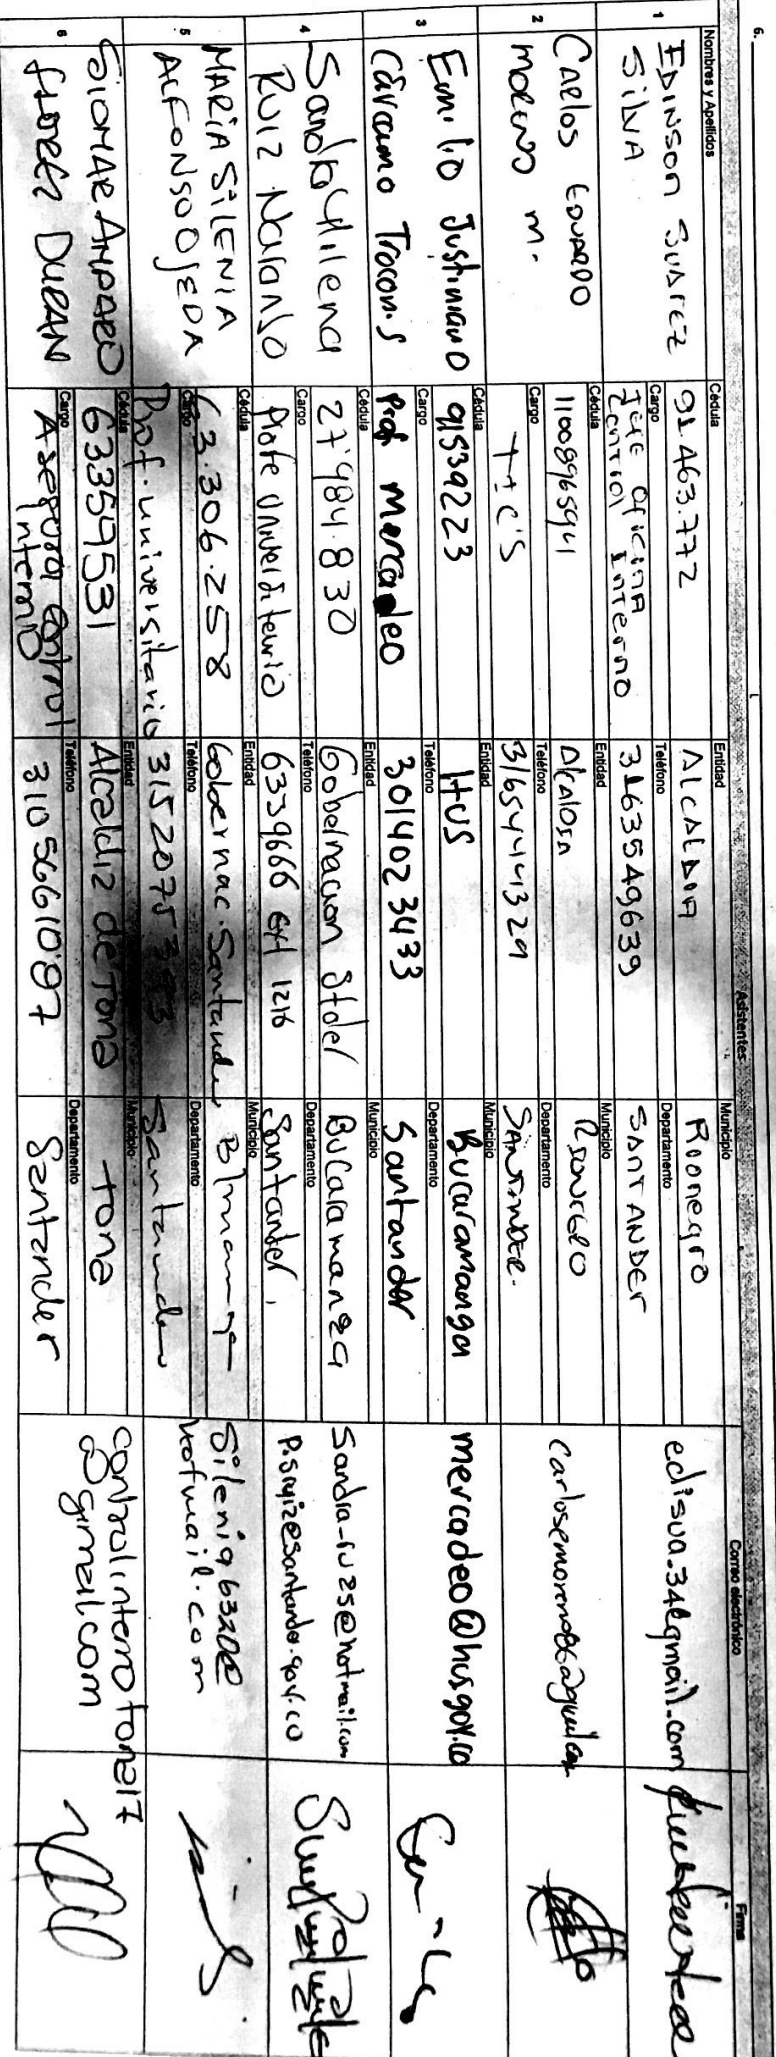 6.
Asistentes
Nombres y Apellidos
Correo electrónico
Firma
1
EDINSON SUAREZ
SILVA
Cédula
91.463.772
Cargo
Jefe Oficina
Control Interno
Entidad
ALCALDIA
Teléfono
3163549639
Municipio
Rionegro
Departamento
SANTANDER
edisua.34@gmail.com
2
Carlos EDUARDO
MORENO M.
Cédula
1100896594
Cargo
TIC'S
Entidad
Alcaldia
Teléfono
Municipio
Departamento
SANTANDER.
3
Emilio Justiniano
Cárcamo Troconis
Cédula
91539223
Cargo
Prof Mercadeo
Entidad
HUS
Teléfono
3014023433
Municipio
Bucaramanga
Departamento
Santander
mercadeo@hus.gov.co
4
Sandra Milena
Ruiz Naranjo
Cédula
27'984.830
Cargo
Entidad
Gobernacion Stder
Teléfono
6339666 ext 1216
Municipio
Bucaramanga
Departamento
Santander.
Sandra-ru25@hotmail.com
5
MARIA SILENIA
ALFONSO OJEDA
Cédula
63.306.258
Cargo
Prof. universitario
Entidad
Gobernac. Santander
Teléfono
Municipio
Departamento
Santander
hotmail.com
6
SIOMAR AMPARO
FLOREZ DURAN
Cédula
63359531
Cargo
Asesora Control
Interno
Entidad
Alcaldia de Tona
Teléfono
3105661087
Municipio
Tona
Departamento
Santander
controlinternotona17
@gmail.com